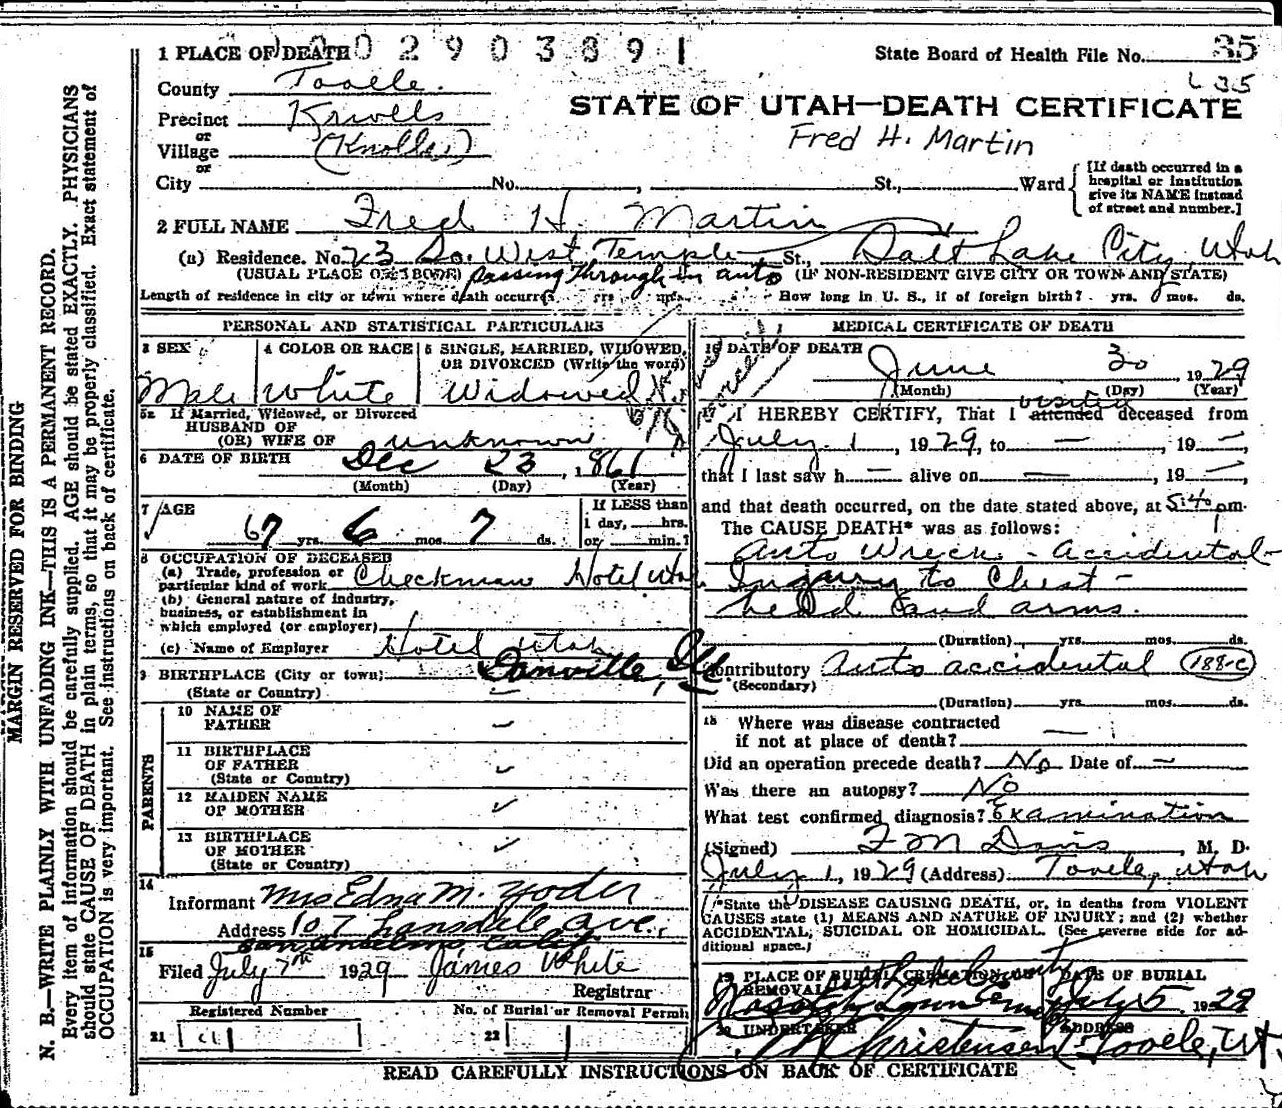 1 PLACE OF DEATH 0 0 2 9 0 3 8 9 1
State Board of Health File No. 35
County Tooele.
L 35
STATE OF UTAH—DEATH CERTIFICATE
Precinct Knolls
or
Fred H. Martin
Village (Knolls)
or
City No. , St., Ward
[If death occurred in a
hospital or institution
give its NAME instead
of street and number.]
2 FULL NAME Fred H. Martin
(a) Residence. No. 23 So. West Temple St., Salt Lake City, Utah
(USUAL PLACE OF ABODE) passing through in auto (IF NON-RESIDENT GIVE CITY OR TOWN AND STATE)
Length of residence in city or town where death occurred yrs. mos. How long in U. S., if of foreign birth? yrs. mos. ds.
PERSONAL AND STATISTICAL PARTICULARS
3 SEX
4 COLOR OR RACE
5 SINGLE, MARRIED, WIDOWED,
OR DIVORCED (Write the word)
Male White Widowed
5a If Married, Widowed, or Divorced
HUSBAND OF
(OR) WIFE OF unknown
6 DATE OF BIRTH Dec 23, 1861
(Month) (Day) (Year)
7 AGE
67 yrs. 6 mos. 7 ds.
If LESS than
1 day, hrs.
or min.?
8 OCCUPATION OF DECEASED
(a) Trade, profession or
particular kind of work Checkman Hotel Utah
(b) General nature of industry,
business, or establishment in
which employed (or employer)
(c) Name of Employer Hotel Utah
9 BIRTHPLACE (City or town) Danville, Ill
(State or Country)
PARENTS
10 NAME OF
FATHER
11 BIRTHPLACE
OF FATHER
(State or Country)
12 MAIDEN NAME
OF MOTHER
13 BIRTHPLACE
OF MOTHER
(State or Country)
14
Informant Mrs Edna M. Yoder
Address 107 Lansdale Ave.,
San Anselmo, Calif.
15
Filed July 7th 1929 James White
Registrar
Registered Number No. of Burial or Removal Permit
21 22
MEDICAL CERTIFICATE OF DEATH
16 DATE OF DEATH
June 30, 1929
(Month) (Day) (Year)
visited
I HEREBY CERTIFY, That I attended deceased from
July 1, 1929, to — , 19 —
that I last saw h — alive on — , 19 —
and that death occurred, on the date stated above, at 5:40 pm.
The CAUSE DEATH* was as follows:
Auto Wreck - accidental -
Injury to Chest -
head and arms.
(Duration) yrs. mos. ds.
Contributory Auto accidental (188-c)
(Secondary)
(Duration) yrs. mos. ds.
18 Where was disease contracted
if not at place of death? —
Did an operation precede death? No Date of —
Was there an autopsy? No
What test confirmed diagnosis? Examination
(Signed) F M Davis, M. D.
July 1, 1929 (Address) Tooele, Utah
*State the DISEASE CAUSING DEATH, or, in deaths from VIOLENT
CAUSES state (1) MEANS AND NATURE OF INJURY; and (2) whether
ACCIDENTAL, SUICIDAL OR HOMICIDAL. (See reverse side for ad-
ditional space.)
19 PLACE OF BURIAL, CREMATION, OR
REMOVAL
Salt Lake County
Wasatch Lawn
DATE OF BURIAL
July 5 1929
20 UNDERTAKER
Christensen
ADDRESS
Tooele, Ut.
READ CAREFULLY INSTRUCTIONS ON BACK OF CERTIFICATE
MARGIN RESERVED FOR BINDING
N. B.—WRITE PLAINLY WITH UNFADING INK—THIS IS A PERMANENT RECORD.
Every item of information should be carefully supplied. AGE should be stated EXACTLY. PHYSICIANS
should state CAUSE OF DEATH in plain terms, so that it may be properly classified. Exact statement of
OCCUPATION is very important. See instructions on back of certificate.